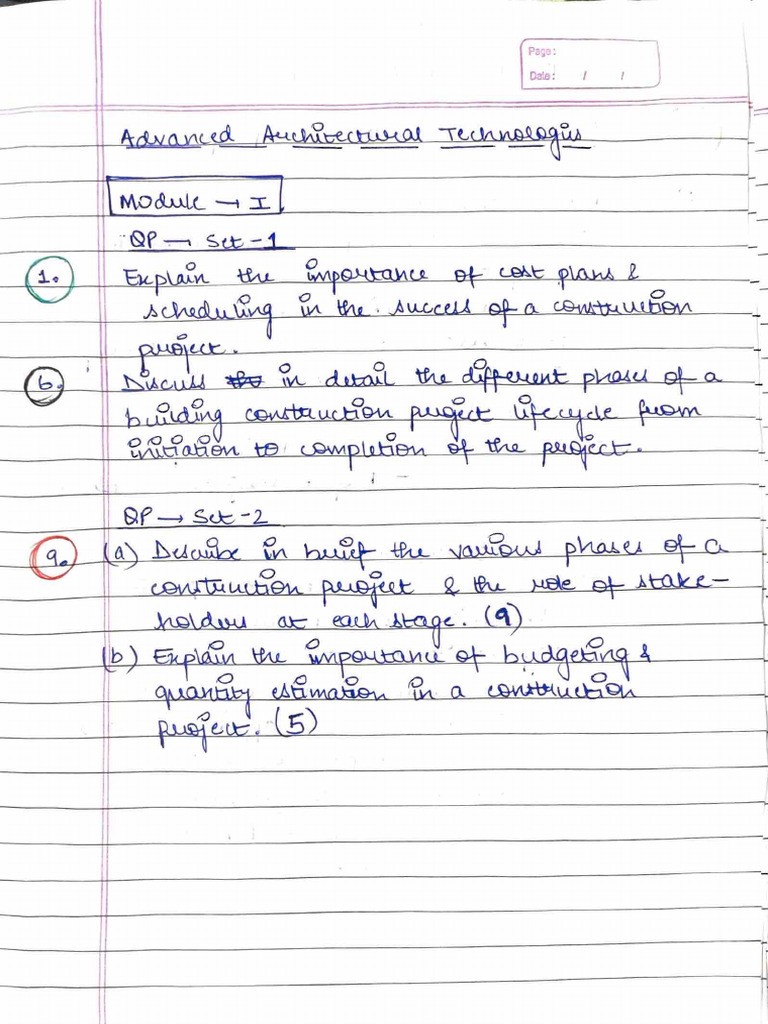 Page:
Date: / /
Advanced Architectural Technologies
Module → I
QP → Set - 1
1. Explain the importance of cost plans &
scheduling in the success of a construction
project.
6. Discuss in detail the different phases of a
building construction project lifecycle from
initiation to completion of the project.
QP → Set - 2
9. (a) Describe in brief the various phases of a
construction project & the role of stake-
holders at each stage. (9)
(b) Explain the importance of budgeting &
quantity estimation in a construction
project. (5)